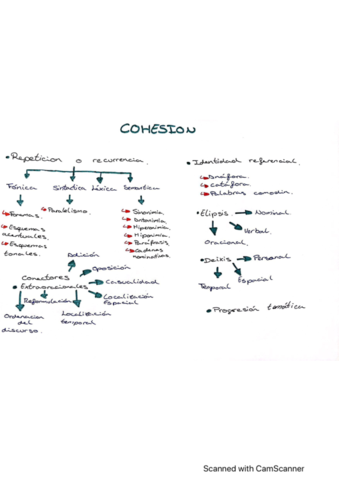 COHESION
• Repeticion o recurrencia.
Fónica
Sintáctica
Léxica
Semántica
Fonemas.
Esquemas
acentuales.
Esquemas
tonales.
Paralelismo.
Sinonimia
Antonimia
Hiperonimia
Hiponimia.
Paráfrasis
Cadenas
nominativas.
Conectores
• Extraoracionales
Adición
Oposición
Casualidad
Localización
espacial
Localización
temporal
Reformulación
Ordenacion
del
discurso.
• Identidad referencial.
Anáfora.
Catáfora
Palabras comodín.
• Elipsis
Nominal
Verbal
Oracional.
• Deixis
Personal
Espacial
Temporal
• Progresión temática
Scanned with CamScanner